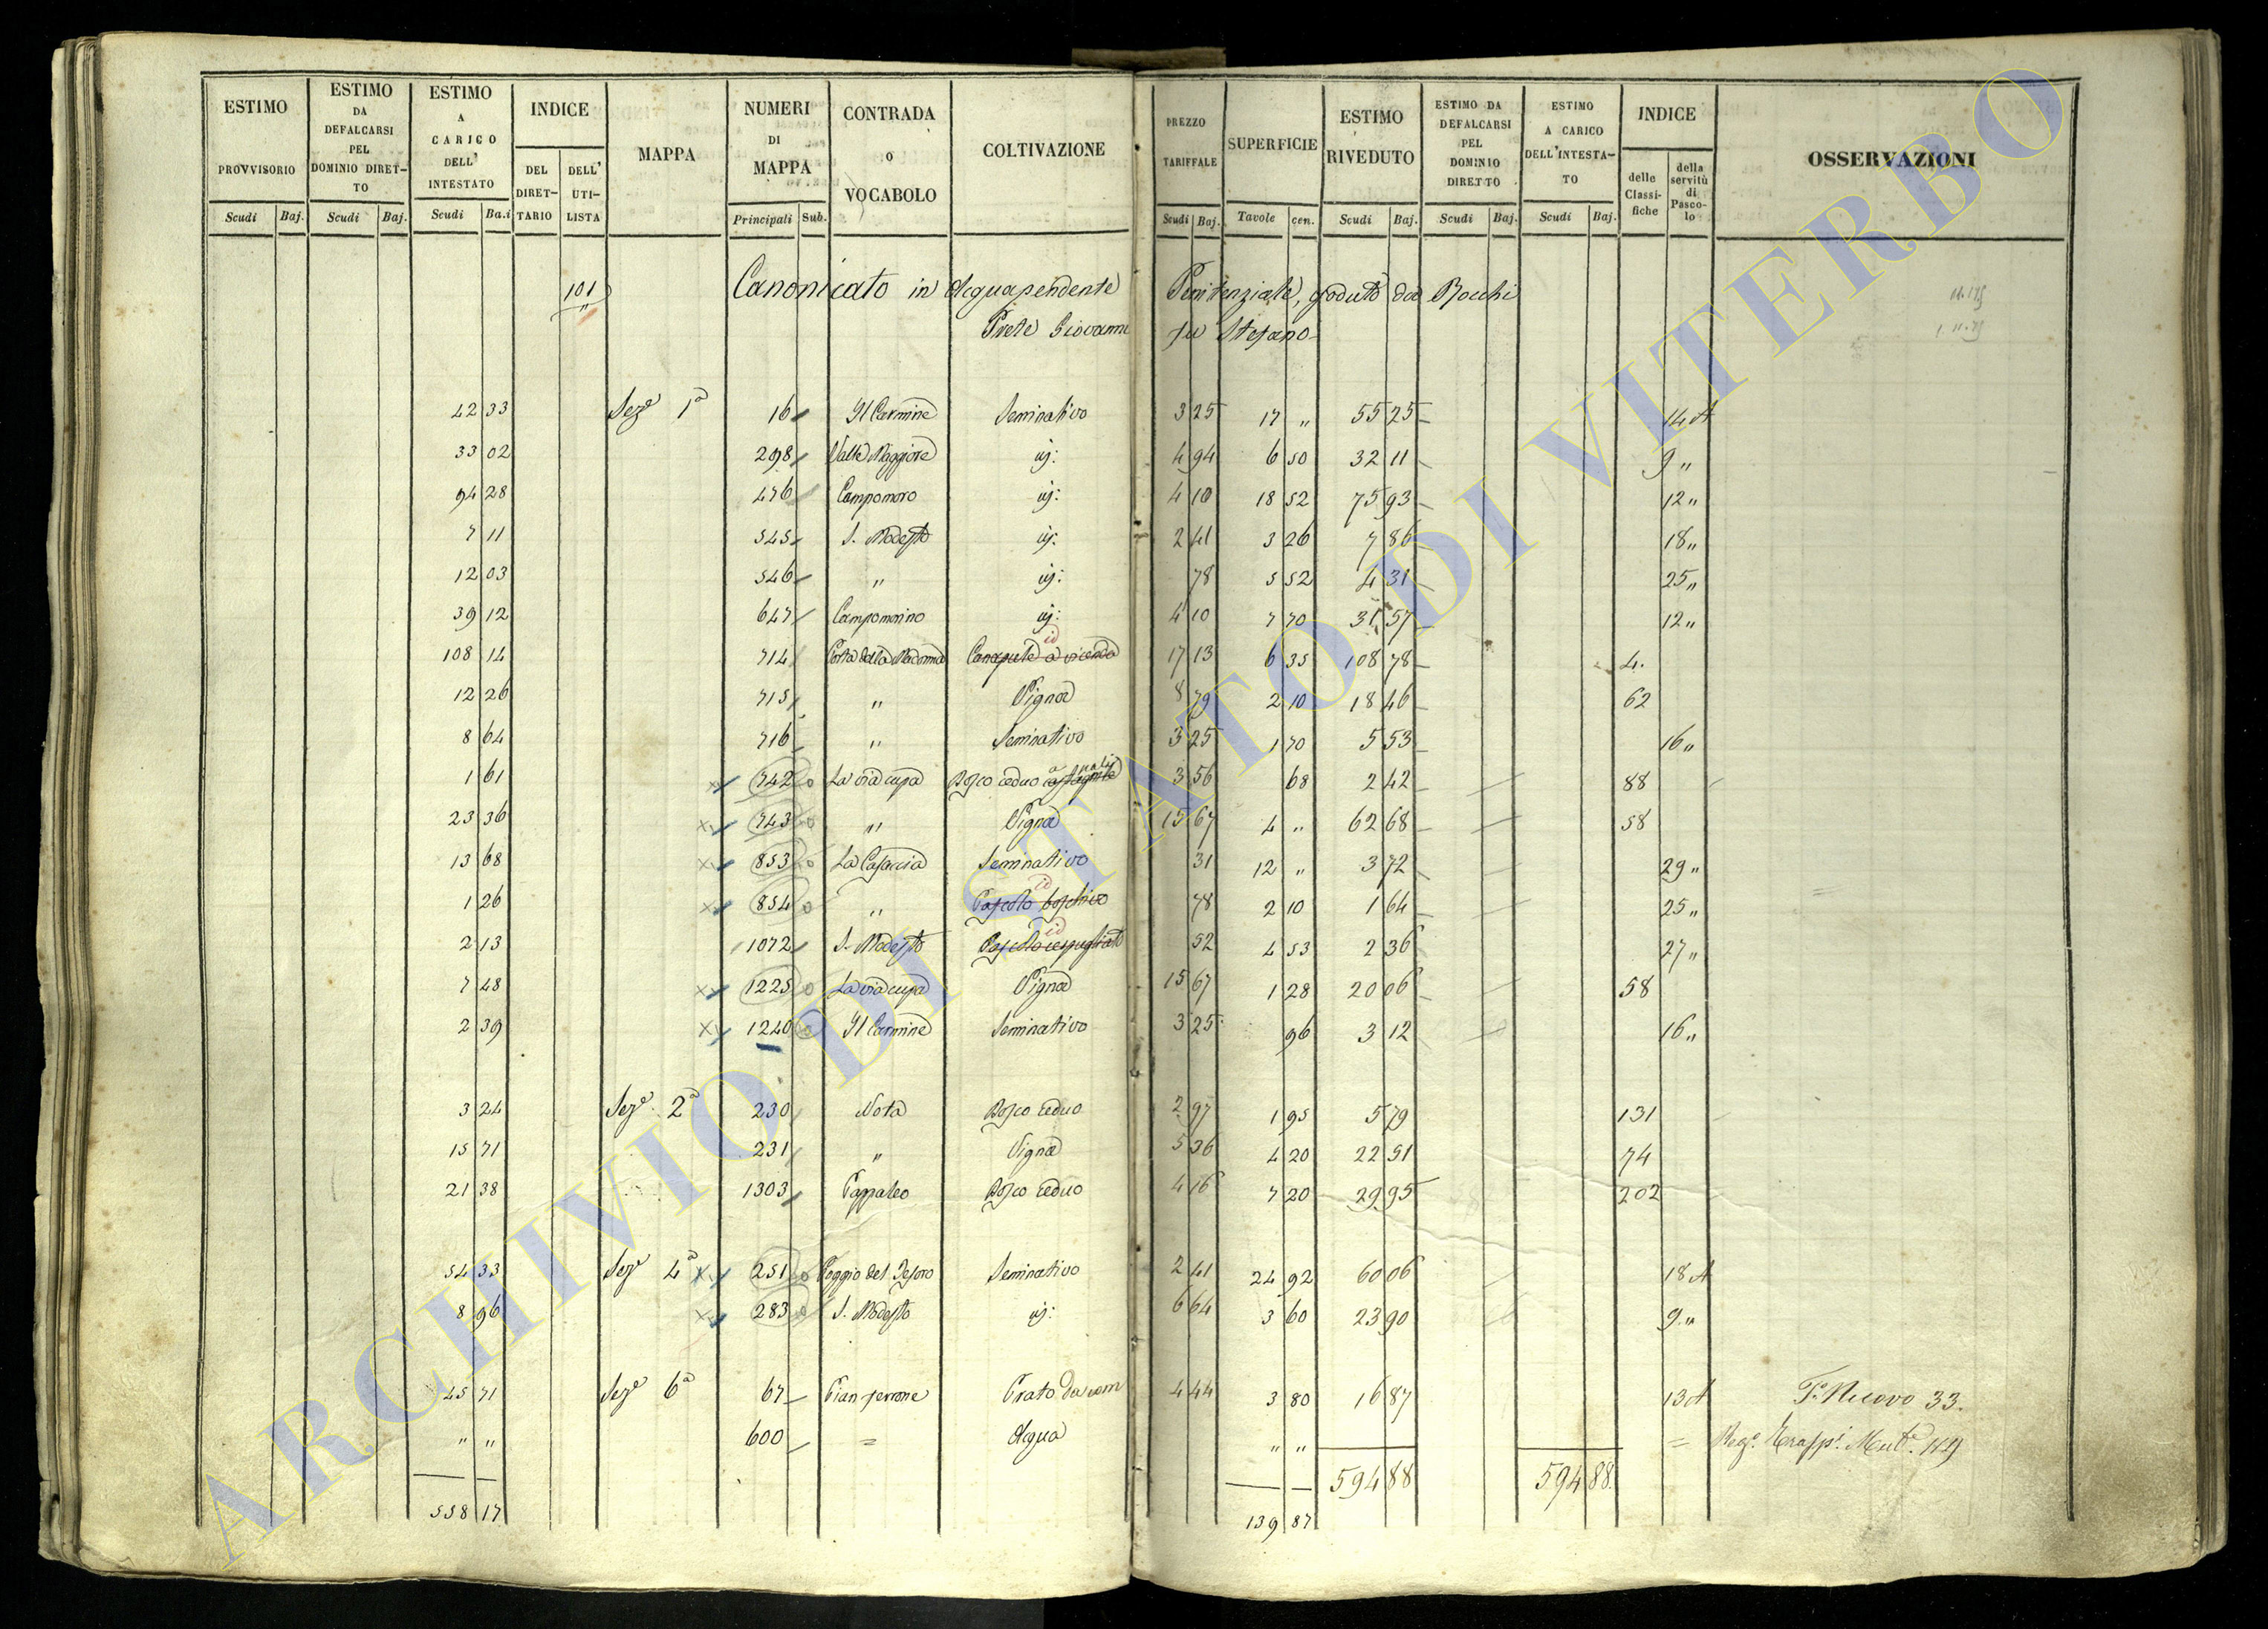 ESTIMO PROVVISORIO Scudi Baj.
ESTIMO DA DEFALCARSI PEL DOMINIO DIRET-TO Scudi Baj.
ESTIMO A CARICO DELL' INTESTATO Scudi Ba.i
INDICE DEL DIRET-TARIO DELL' UTI-LISTA
MAPPA
NUMERI DI MAPPA Principali Sub.
CONTRADA O VOCABOLO
COLTIVAZIONE
PREZZO TARIFFALE Scudi Baj.
SUPERFICIE Tavole cen.
ESTIMO RIVEDUTO Scudi Baj.
ESTIMO DA DEFALCARSI PEL DOMINIO DIRETTO Scudi Baj.
ESTIMO A CARICO DELL'INTESTA-TO Scudi Baj.
INDICE delle Classi-fiche della servitù di Pasco-lo
OSSERVAZIONI
101 Canonicato in Acquapendente Penitenziale, goduto da Rocchi
Prete Giovanni fu Stefano
42 33 Sez.e 1a 16 Il Carmine Seminativo 3 25 17 " 55 25 14 A
33 02 298 Valle Maggiore id: 4 94 6 50 32 11 9 "
94 28 476 Campomoro id: 4 10 18 52 75 93 12 "
7 11 545 S. Modesto id: 2 41 3 26 7 86 18 "
12 03 546 " id: 78 5 52 4 31 25 "
39 12 647 Campomorino id: 4 10 7 70 31 57 12 "
108 14 714 Costa della Madonna Canepule a vicenda id 17 13 6 35 108 78 4.
12 26 715 " Vigna 8 79 2 10 18 46 62
8 64 716 " Seminativo 3 25 1 70 5 53 16 "
1 61 742 La via cupa Bosco ceduo 3 56 68 2 42 88
23 36 743 " Vigna 15 67 4 " 62 68 58
13 68 853 La Casaccia Seminativo 31 12 " 3 72 29 "
1 26 854 " Pascolo boschivo id 78 2 10 1 64 25 "
2 13 1072 S. Modesto Pascolo cespugliato id 52 4 53 2 36 27 "
7 48 1225 La via cupa Vigna 15 67 1 28 20 06 58
2 39 1240 Il Carmine Seminativo 3 25 96 3 12 16 "
3 24 Sez.e 2a 230 Nota Bosco ceduo 2 97 1 95 5 79 131
15 71 231 " Vigna 5 36 4 20 22 51 74
21 38 1303 Pappaleo Bosco ceduo 4 16 7 20 29 95 202
54 33 Sez.e 4a 251 Poggio del Tesoro Seminativo 2 41 24 92 60 06 18 A
8 96 283 S. Modesto id: 6 64 3 60 23 90 9 "
45 71 Sez.e 6a 67 Pian Perrone Prato da 4 44 3 80 16 87 13 A P.a Nuovo 33.
" " 600 = Acqua " " = Reg.o Trasp.i Mut.e
594 88 594 88.
558 17 139 87
ARCHIVIO DI STATO DI VITERBO